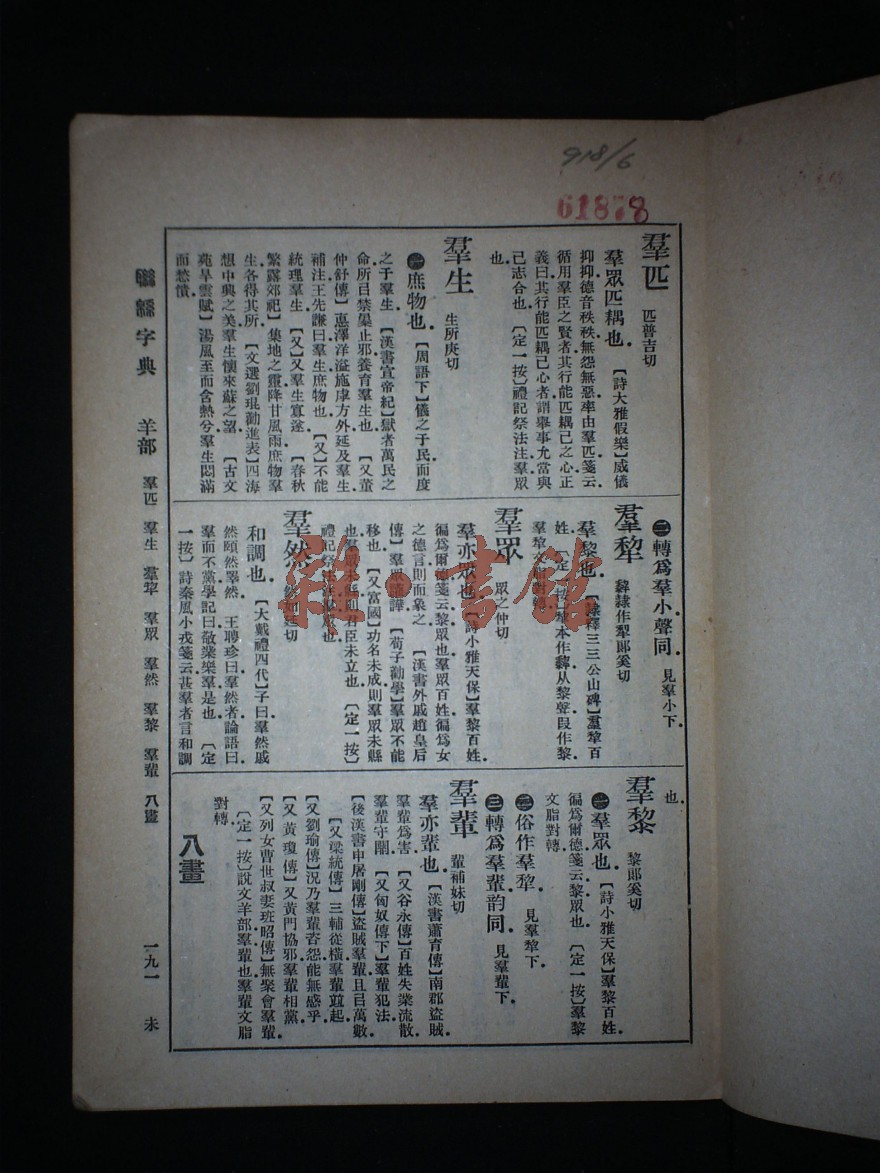 918/6
61878
羣匹 匹普吉切
羣眾匹耦也 【詩大雅假樂】威儀
抑抑德音秩秩無怨無惡率由羣匹箋云
循用羣臣之賢者其行能匹耦己之心正
義曰其行能匹耦己心者謂舉事允當與
己志合也 〔定一按〕禮記祭法注羣眾
也
羣生 生所庚切
㊀庶物也 【周語下】儀之于民而度
之于羣生 【漢書宣帝紀】獄者萬民之
命所㠯禁㬥止邪養育羣生也 【又董
仲舒傳】恩澤洋溢施虖方外延及羣生
補注王先謙曰羣生庶物也 【又】不能
統理羣生 【又】又羣生寡遂 【春秋
繁露郊祀】集地之靈降甘風雨庶物羣
生各得其所 【文選劉琨勸進表】四海
想中興之美羣生懷來蘇之望 【古文
苑旱雲賦】湯風至而含熱兮羣生悶滿
而愁憒
㊁轉爲羣小聲同 見羣小下
羣犂 黧隷作犂郞奚切
羣黎也 【隸釋三三公山碑】羣犂百
姓 〔定一按〕犂本作𥝢从黎聲段作黎
羣犂文脂對轉
羣眾 眾之仲切
羣亦眾也 【詩小雅天保】羣黎百姓
徧爲爾德箋云黎眾也羣眾百姓徧爲女
之德言則而象之 【漢書外戚趙皇后
傳】羣眾讙譁 【荀子勸學】羣眾不能
移也 【又富國】功名未成則羣眾未縣
也羣眾未縣則君臣未立也 〔定一按〕
禮記祭法注羣眾也
羣然 然如延切
和調也 【大戴禮四代】子曰羣然戚
然頤然睪然 王聘珍曰羣然者論語曰
羣而不黨學記曰敬業樂羣是也 〔定
一按〕詩秦風小戎箋云甚羣者言和調
也
羣黎 黎郞奚切
㊀羣眾也 【詩小雅天保】羣黎百姓
徧爲爾德箋云黎眾也 〔定一按〕羣黎
文脂對轉
㊁俗作羣犂 見羣犂下
㊂轉爲羣輩韵同 見羣輩下
羣輩 輩補妹切
羣亦輩也 【漢書蕭育傳】南郡盜賊
羣輩爲害 【又谷永傳】百姓失業流散
羣輩守關 【又匈奴傳下】羣輩犯法
【後漢書申屠剛傳】盜賊羣輩且㠯萬數
【又梁統傳】三輔從橫羣輩竝起
【又劉瑜傳】況乃羣輩咨怨能無感乎
【又黃瓊傳】又黃門協邪羣輩相黨
【又列女曹世叔妻班昭傳】無聚會羣輩
〔定一按〕說文羊部羣輩也羣輩文脂
對轉
八畫
聯緜字典 羊部 羣匹 羣生 羣犂 羣眾 羣然 羣黎 羣輩 八畫 一九一 未
雜·書館